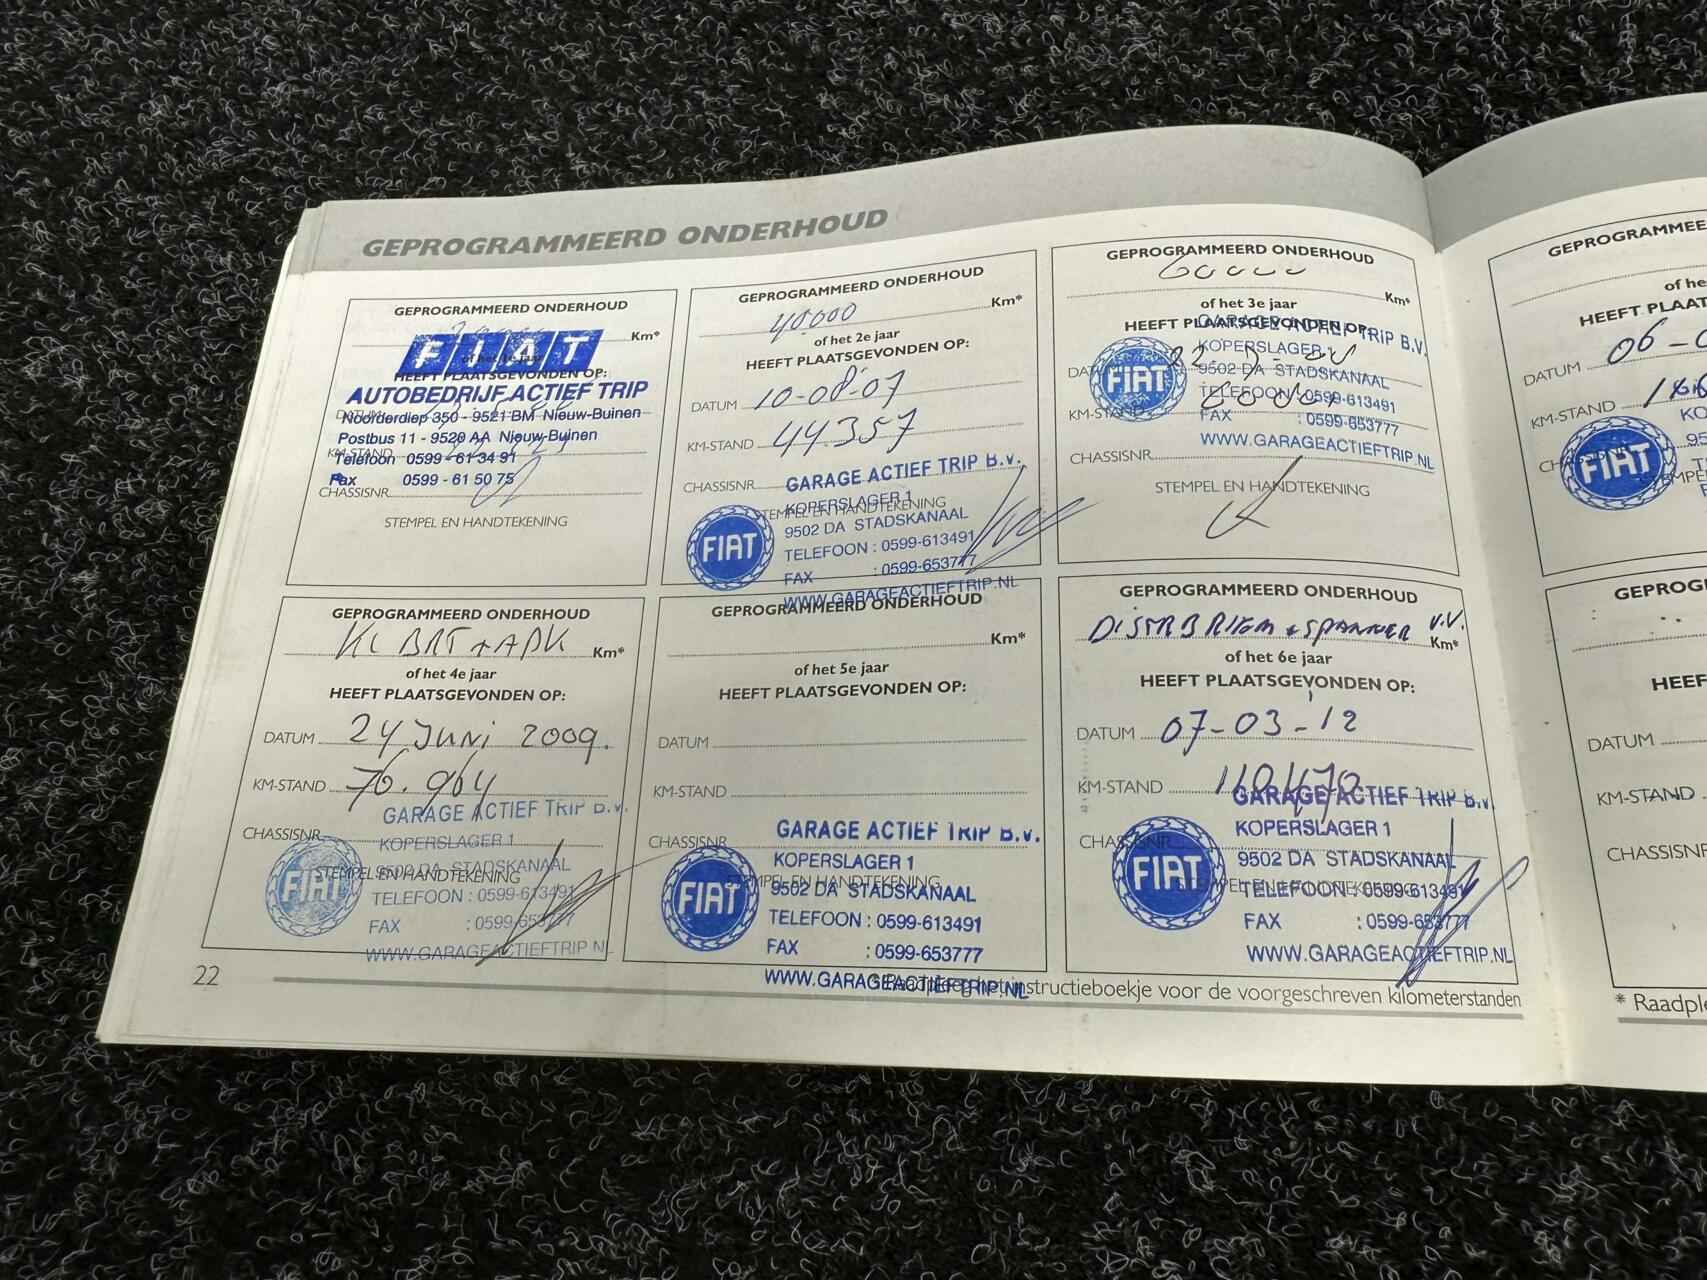 GEPROGRAMMEERD ONDERHOUD
GEPROGRAMMEERD ONDERHOUD
Km*
FIAT
of het 1e jaar
HEEFT PLAATSGEVONDEN OP:
AUTOBEDRIJF ACTIEF TRIP
DATUM
Noorderdiep 350 - 9521 BM Nieuw-Buinen
Postbus 11 - 9520 AA Nieuw-Buinen
KM-STAND
Telefoon 0599 - 61 34 91
Fax 0599 - 61 50 75
CHASSISNR
STEMPEL EN HANDTEKENING
GEPROGRAMMEERD ONDERHOUD
40000 Km*
of het 2e jaar
HEEFT PLAATSGEVONDEN OP:
DATUM 10-08-07
KM-STAND 44357
CHASSISNR
GARAGE ACTIEF TRIP B.V.
STEMPEL EN HANDTEKENING
KOPERSLAGER 1
9502 DA STADSKANAAL
FIAT
TELEFOON : 0599-613491
FAX : 0599-653777
WWW.GARAGEACTIEFTRIP.NL
GEPROGRAMMEERD ONDERHOUD
60000 Km*
of het 3e jaar
HEEFT PLAATSGEVONDEN OP:
GARAGE ACTIEF TRIP B.V.
KOPERSLAGER 1
DATUM
9502 DA STADSKANAAL
FIAT
TELEFOON : 0599-613491
KM-STAND
FAX : 0599-653777
WWW.GARAGEACTIEFTRIP.NL
CHASSISNR
STEMPEL EN HANDTEKENING
GEPROGRAMMEERD ONDERHOUD
KL BRT + APK Km*
of het 4e jaar
HEEFT PLAATSGEVONDEN OP:
DATUM 24 JUNI 2009.
KM-STAND 76.964
GARAGE ACTIEF TRIP B.V.
CHASSISNR
KOPERSLAGER 1
9500 DA STADSKANAAL
STEMPEL EN HANDTEKENING
FIAT
TELEFOON : 0599-613491
FAX : 0599-653777
WWW.GARAGEACTIEFTRIP.NL
GEPROGRAMMEERD ONDERHOUD
Km*
of het 5e jaar
HEEFT PLAATSGEVONDEN OP:
DATUM
KM-STAND
CHASSISNR
GARAGE ACTIEF TRIP B.V.
KOPERSLAGER 1
STEMPEL EN HANDTEKENING
9502 DA STADSKANAAL
FIAT
TELEFOON : 0599-613491
FAX : 0599-653777
WWW.GARAGEACTIEFTRIP.NL
GEPROGRAMMEERD ONDERHOUD
DISTRB RIEM + SPANNER V.V. Km*
of het 6e jaar
HEEFT PLAATSGEVONDEN OP:
DATUM 07-03-12
KM-STAND 110470
GARAGE ACTIEF TRIP B.V.
KOPERSLAGER 1
CHASSISNR
9502 DA STADSKANAAL
FIAT
STEMPEL EN HANDTEKENING
TELEFOON : 0599-613491
FAX : 0599-653777
WWW.GARAGEACTIEFTRIP.NL
22
* Raadpleeg het instructieboekje voor de voorgeschreven kilometerstanden
GEPROGRAMMEE
of he
HEEFT PLAATS
DATUM 06-0
KM-STAND
KO
95
FIAT
GEPROG
HEEF
DATUM
KM-STAND
CHASSISNR
* Raadple